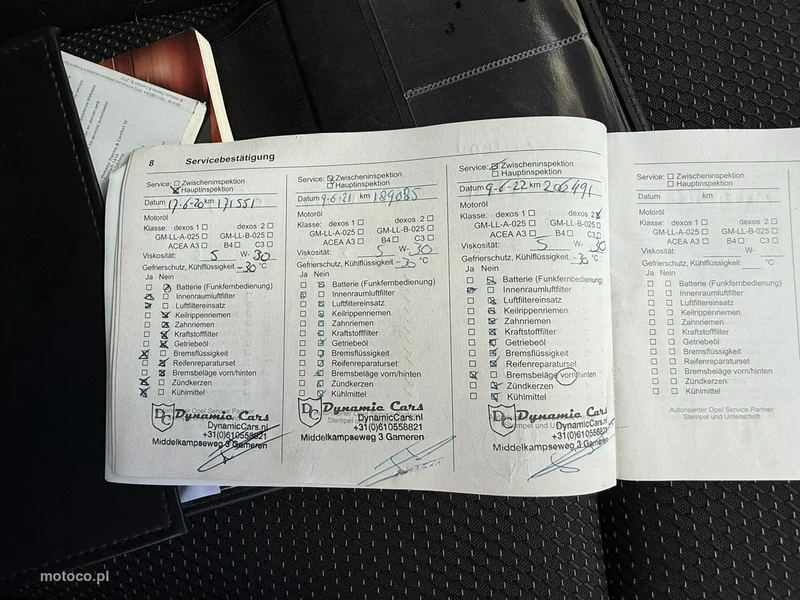 8 Servicebestätigung
Service: Zwischeninspektion
Hauptinspektion
Datum 17-6-20 km 171551
Motoröl
Klasse: dexos 1 dexos 2
GM-LL-A-025 GM-LL-B-025
ACEA A3 B4 C3
Viskosität: 5 W- 30
Gefrierschutz, Kühlflüssigkeit -30 °C
Ja Nein
Batterie (Funkfernbedienung)
Innenraumluftfilter
Luftfiltereinsatz
Keilrippenriemen
Zahnriemen
Kraftstofffilter
Getriebeöl
Bremsflüssigkeit
Reifenreparaturset
Bremsbeläge vorn/hinten
Zündkerzen
Kühlmittel
Dynamic Cars
DynamicCars.nl
+31(0)610558821
Middelkampseweg 3 Gameren
Service: Zwischeninspektion
Hauptinspektion
Datum 9-6-21 km 189085
Motoröl
Klasse: dexos 1 dexos 2
GM-LL-A-025 GM-LL-B-025
ACEA A3 B4 C3
Viskosität: 5 W- 30
Gefrierschutz, Kühlflüssigkeit -30 °C
Ja Nein
Batterie (Funkfernbedienung)
Innenraumluftfilter
Luftfiltereinsatz
Keilrippenriemen
Zahnriemen
Kraftstofffilter
Getriebeöl
Bremsflüssigkeit
Reifenreparaturset
Bremsbeläge vorn/hinten
Zündkerzen
Kühlmittel
Dynamic Cars
DynamicCars.nl
+31(0)610558821
Middelkampseweg 3 Gameren
Service: Zwischeninspektion
Hauptinspektion
Datum 9-6-22 km 206491
Motoröl
Klasse: dexos 1 dexos 2
GM-LL-A-025 GM-LL-B-025
ACEA A3 B4 C3
Viskosität: 5 W- 30
Gefrierschutz, Kühlflüssigkeit -30 °C
Ja Nein
Batterie (Funkfernbedienung)
Innenraumluftfilter
Luftfiltereinsatz
Keilrippenriemen
Zahnriemen
Kraftstofffilter
Getriebeöl
Bremsflüssigkeit
Reifenreparaturset
Bremsbeläge vorn/hinten
Zündkerzen
Kühlmittel
Dynamic Cars
DynamicCars.nl
+31(0)610558821
Middelkampseweg 3 Gameren
Service: Zwischeninspektion
Hauptinspektion
Datum km
Motoröl
Klasse: dexos 1 dexos 2
GM-LL-A-025 GM-LL-B-025
ACEA A3 B4 C3
Viskosität: W-
Gefrierschutz, Kühlflüssigkeit °C
Ja Nein
Batterie (Funkfernbedienung)
Innenraumluftfilter
Luftfiltereinsatz
Keilrippenriemen
Zahnriemen
Kraftstofffilter
Getriebeöl
Bremsflüssigkeit
Reifenreparaturset
Bremsbeläge vorn/hinten
Zündkerzen
Kühlmittel
Autorisierter Opel Service Partner
Stempel und Unterschrift
motoco.pl